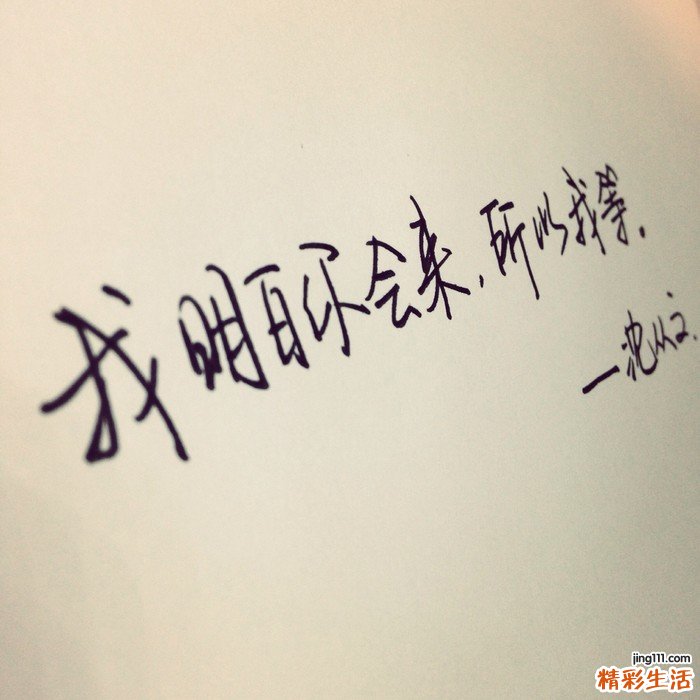 我明白你会来，所以我等。
—沈从文.
jing111.com
精彩生活